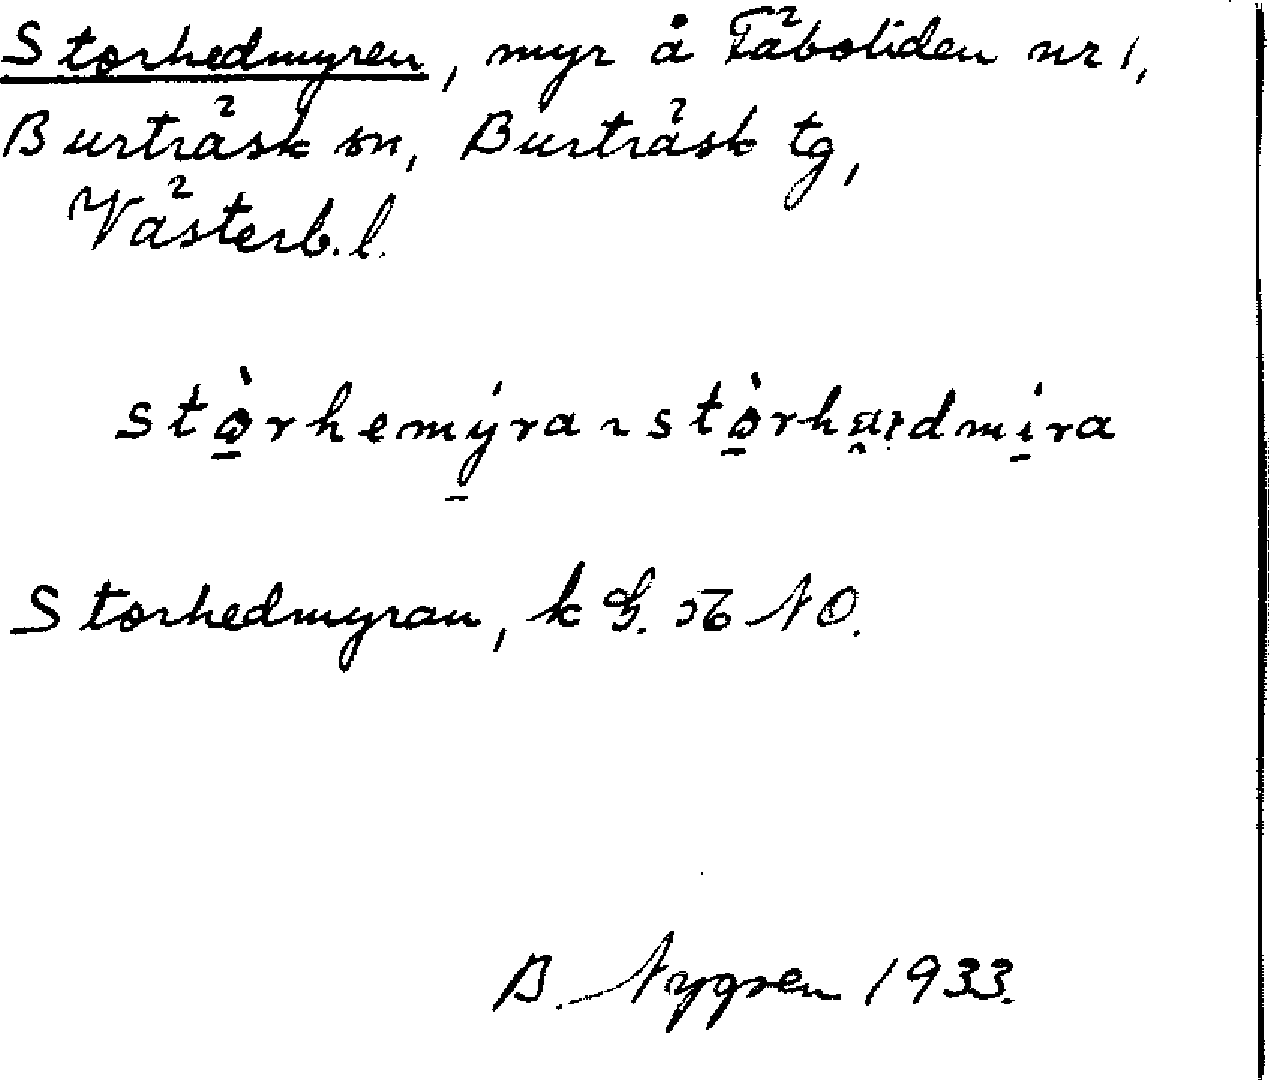 Storhedmyren, myr å Fäboliden nr 1,
Burträsk sn, Burträsk tg,
Västerb. l.
stò̱rhemý̱ra ~ stò̱rh dmí̱ra
Storhedmyran, k G. 56 NO.
B. Nygren 1933.